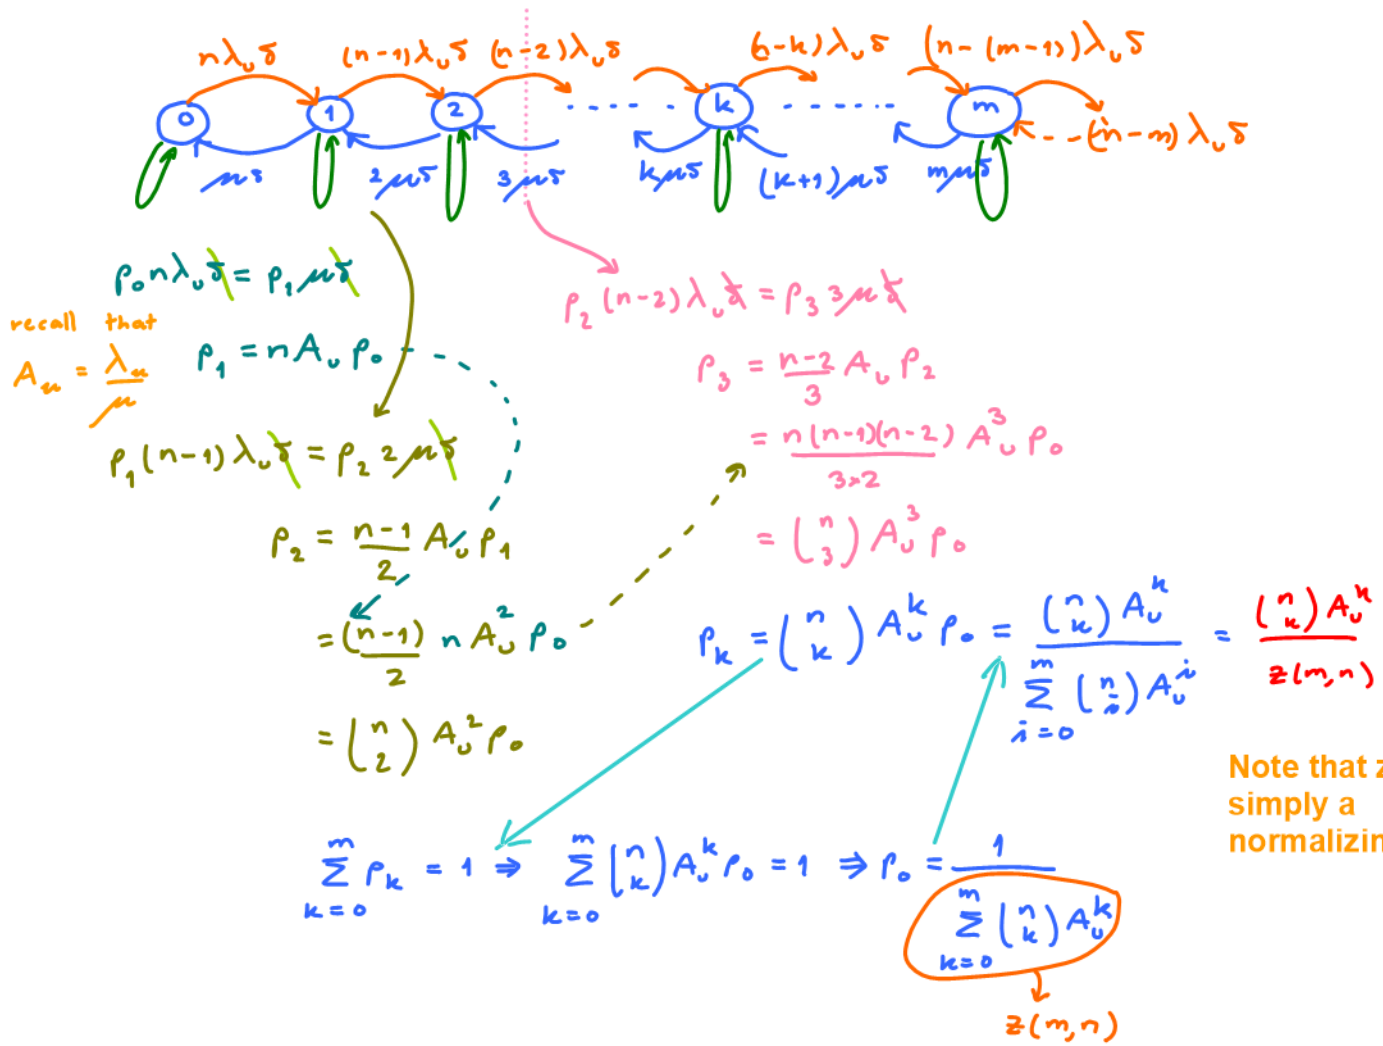 nλ_u δ (n-1)λ_u δ (n-2)λ_u δ (n-k)λ_u δ (n-(m-1))λ_u δ
0 1 2 ...... k ...... m (n-m)λ_u δ
μδ 2μδ 3μδ kμδ (k+1)μδ mμδ
p_0 nλ_u δ = p_1 μδ
recall that
A_u = λ_u/μ
p_1 = nA_u p_0
p_1 (n-1)λ_u δ = p_2 2μδ
p_2 = (n-1)/2 A_u p_1
= (n-1)/2 n A_u^2 p_0
= (n 2) A_u^2 p_0
p_2 (n-2)λ_u δ = p_3 3μδ
p_3 = (n-2)/3 A_u p_2
= n(n-1)(n-2)/(3×2) A_u^3 p_0
= (n 3) A_u^3 p_0
p_k = (n k) A_u^k p_0 = (n k) A_u^k / Σ_{i=0}^{m} (n i) A_u^i = (n k) A_u^k / z(m,n)
Note that z
simply a
normalizin
Σ_{k=0}^{m} p_k = 1 ⇒ Σ_{k=0}^{m} (n k) A_u^k p_0 = 1 ⇒ p_0 = 1 / Σ_{k=0}^{m} (n k) A_u^k
z(m,n)